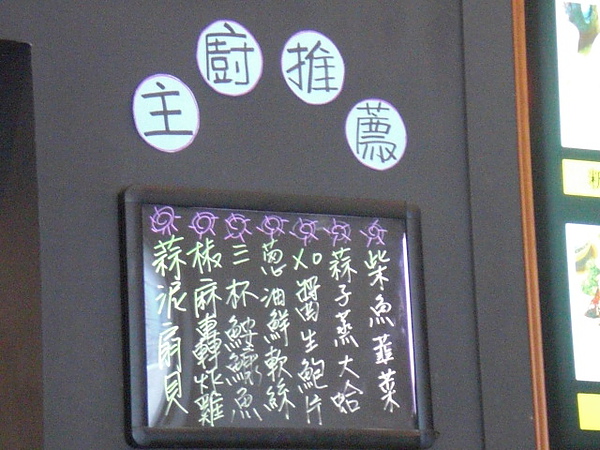 主廚推薦
柴魚韮菜
蒜子蒸大蛤
XO醬生鮑片
蔥油鮮軟絲
三杯魚
椒麻轟炸雞
蒜泥扇貝